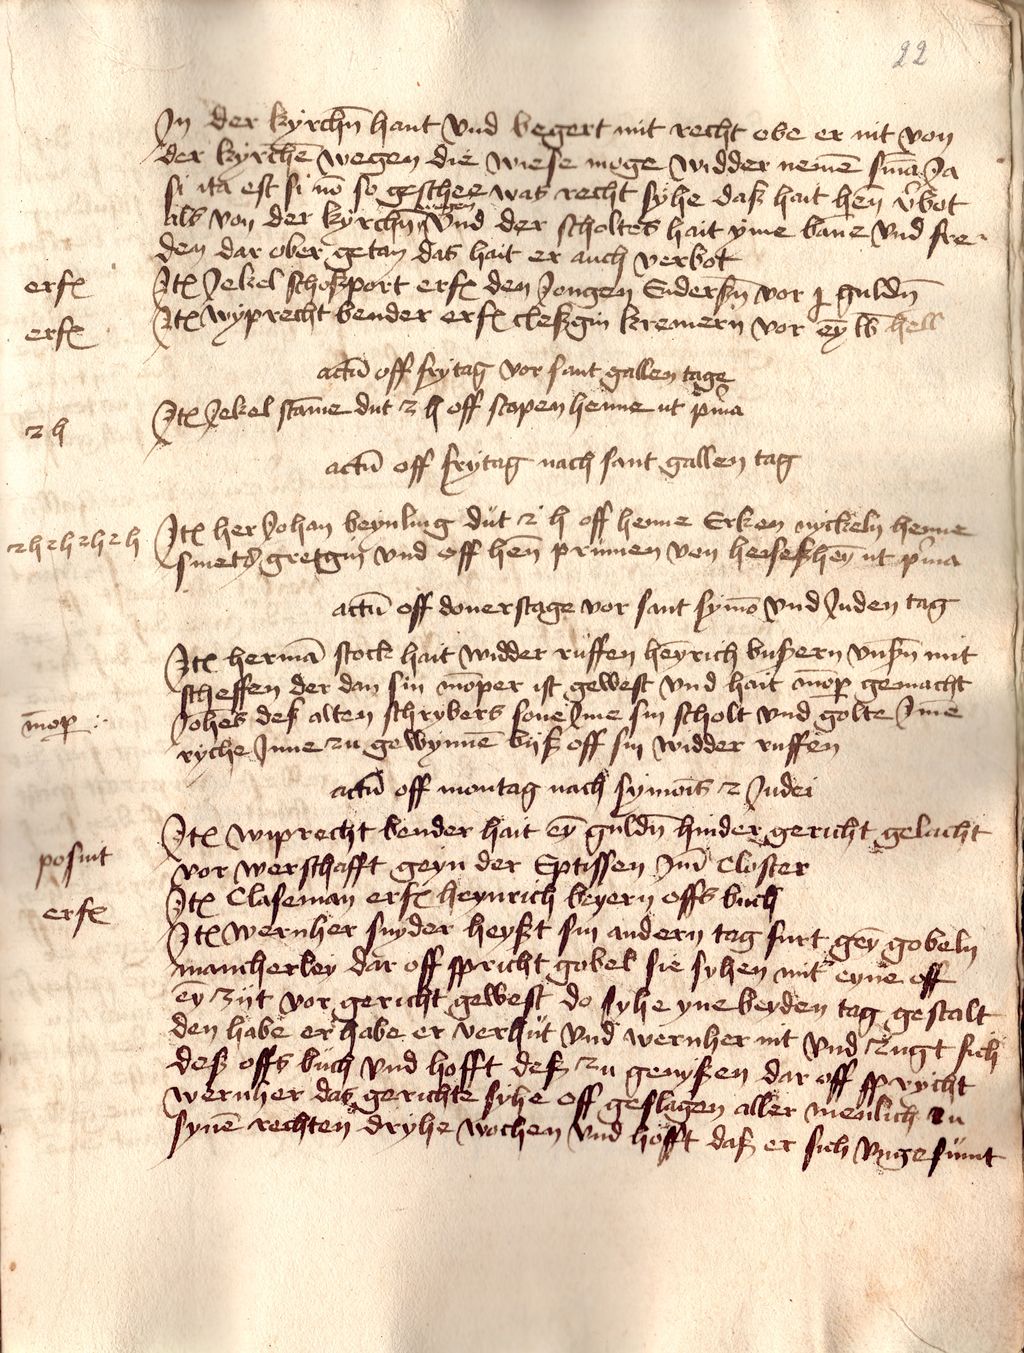 22
In der kyrchen hant vnd begert mit recht obe er nit von
der kyrchē wegen die wiese moge widder nemē sm̄a Ja
si ita est si nō so geschee was recht syhe daß hait hen v'bot
als von der kyrchn wegen vnd der scholtes hait yme bane vnd fre-
den dar ober getan das hait er auch verbot
erf Itē Jekel schoßport erf den Jongen Enders vor j guldn
erf Itē wyprecht bender erf cleßgin kremern vor ey lb hell
actū off frytag vor sant gallen tage
2 h Itē Jekel stāme dut 2 h off stopen henne ut p'ma
actū off frytag nach sant gallen tag
2 h 2 h 2 h 2 h Itē her Johan beynling dut 2 h off henne Erken nyckeln henne
smets gretgin vnd off hen prinnen von heseßhey ut p'ma
actū off donerstage vor sant symō vnd Juden tag
Itē hermā stock hait widder ruffen heyrich bußern vnßn mit
scheffen der dan sin mōper ist gewest vnd hait mōp gemacht
mōp Johēs deß alten schrybers sone Jme sin scholt vnd golte Jme
ryche Jnne zu gewynnē biß off sin widder ruffen
actū off montag nach symōis 2 Judei
Itē wiprecht bender hait ey guldn hinder gericht gelacht
posuit vor werschafft geyn der Eptissen Jm Closter
erf Itē Claseman erf heynrich beyern offs buch
Itē wernher snyder heyßt sin andern tag furt gey gobeln
mancherley dar off spricht gobel sie syhen mit eyne off
ey zijt vor gericht gewest do syhe yne beyden tag gestalt
den habe er habe er verhut vnd wernher nit vnd zugt sich
deß offs buch vnd hofft deß zu genyßen dar off sprycht
wernher das gerichte syhe off geslagen aller menlich zu
synē rechten dryhe wochen vnd hofft daß er sich vngesumt